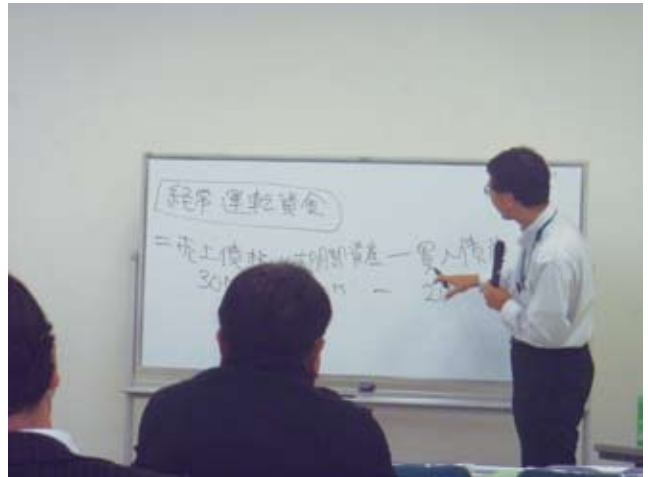 経常運転資金
=売上債権 資産ー買入債
30 - 2